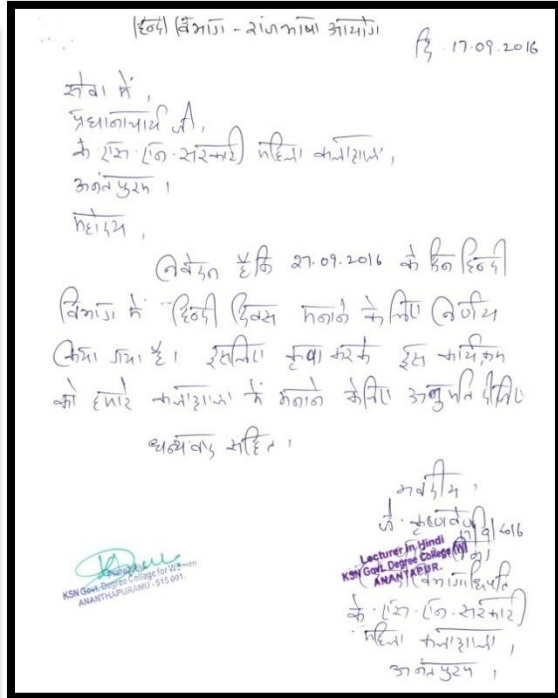 हिन्दी विभाग - राजभाषा आयोग
दि. 17.09.2016
सेवा में,
प्रधानाचार्य जी,
के.एस.एन. सरकारी महिला कलाशाला,
अनंतपुरम ।
महोदय,
निवेदन है कि 27.09.2016 के दिन हिन्दी
विभाग में हिन्दी दिवस मनाने के लिए निर्णय
किया गया है। इसलिए कृपा करके इस कार्यक्रम
को हमारे कलाशाला में मनाने केलिए अनुमति दीजिए
धन्यवाद सहित ।
भवदीय,
Lecturer in Hindi
KSN Govt. Degree College (W)
ANANTAPUR.
विभागाधिपति
के.एस.एन. सरकारी
महिला कलाशाला,
अनंतपुरम ,
KSN Govt. Degree College for Women
ANANTHAPURAMU - 515 001.